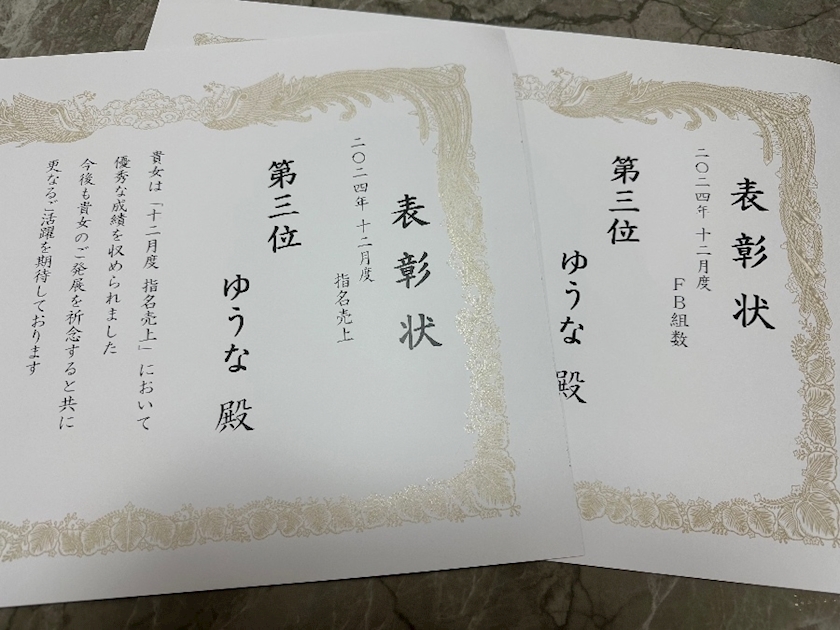 表彰状
二〇二四年 十二月度
指名売上
第三位
ゆうな 殿
貴女は「十二月度 指名売上」において
優秀な成績を収められました
今後も貴女のご発展を祈念すると共に
更なるご活躍を期待しております
表彰状
二〇二四年 十二月度
FB組数
第三位
ゆうな 殿